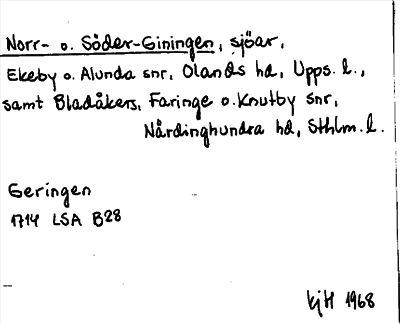 Norr- o. Söder-Giningen, sjöar,
Ekeby o. Alunda snr, Olands hd, Upps. l.,
samt Bladåkers, Faringe o. Knutby snr,
Närdinghundra hd, Sthlm. l.
Geringen
1714 LSA B28
kjH 1968